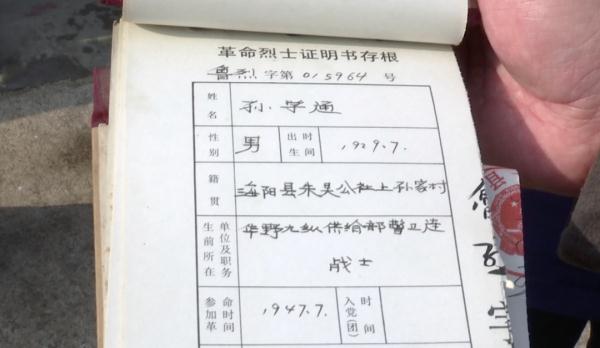 革命烈士证明书存根
鲁烈字第015964号
姓名 孙学通
性别 男 出生时间 1929.7.
籍贯 海阳县朱吴公社上孙家村
生前所在单位及职务 华野九纵供给部警卫连
战士
参加革命时间 1947.7. 入党(团)时间
县
鲁
烈
字